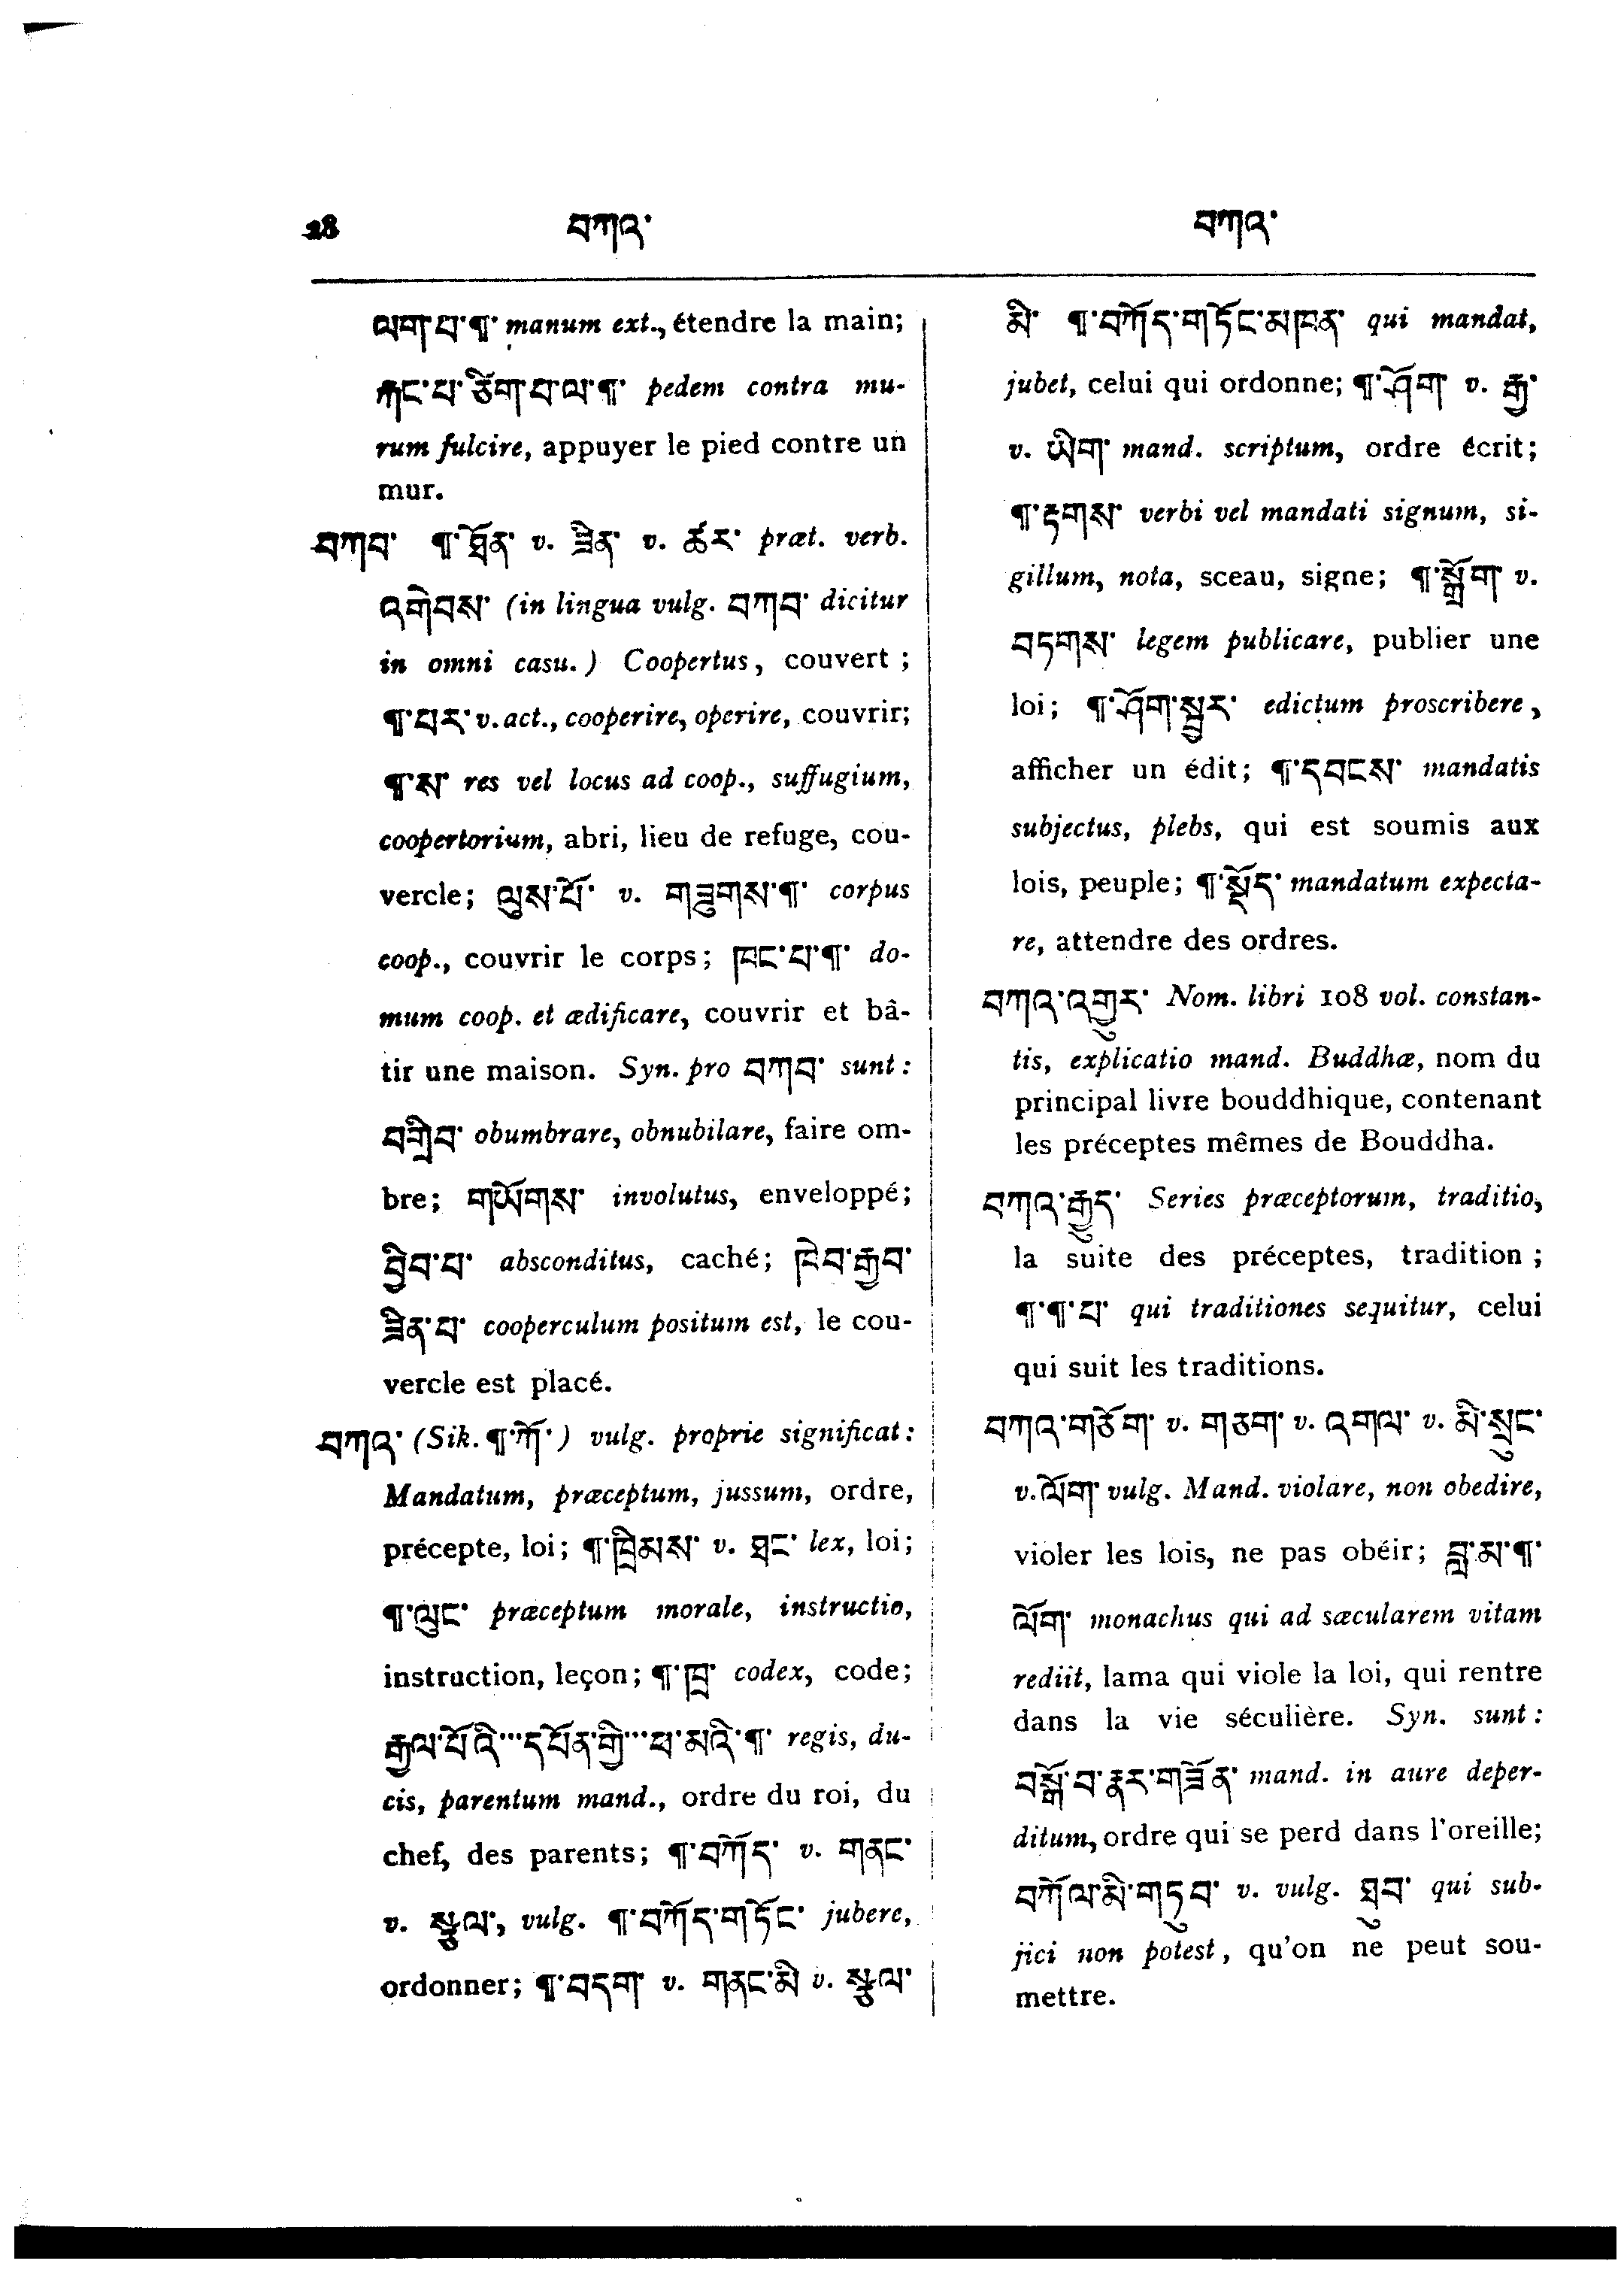 28 བཀའ་ བཀའ་
ལག་པ་¶་ manum ext., étendre la main;
རྐང་པ་རྩིག་པ་ལ་¶་ pedem contra mu-
rum fulcire, appuyer le pied contre un
mur.
བཀབ་ ¶་ཐོན་ v. ཟིན་ v. ཚར་ præt. verb.
འགེབས་ (in lingua vulg. བཀབ་ dicitur
in omni casu.) Coopertus, couvert ;
¶་པར་ v. act., cooperire, operire, couvrir;
¶་ས་ res vel locus ad coop., suffugium,
coopertorium, abri, lieu de refuge, cou-
vercle; ལུས་པོ་ v. གཟུགས་¶་ corpus
coop., couvrir le corps; ཁང་པ་¶་ do-
mum coop. et ædificare, couvrir et bâ-
tir une maison. Syn. pro བཀབ་ sunt:
བགྲིབ་ obumbrare, obnubilare, faire om-
bre; གཡོགས་ involutus, enveloppé;
བྱིབ་པ་ absconditus, caché; ཁེབ་རྒྱབ་
ཟིན་པ་ cooperculum positum est, le cou-
vercle est placé.
བཀའ་ (Sik. ¶་ཀོ་) vulg. proprie significat:
Mandatum, præceptum, jussum, ordre,
précepte, loi; ¶་ཁྲིམས་ v. ཐང་ lex, loi;
¶་ལུང་ præceptum morale, instructio,
instruction, leçon; ¶་ཁྲ་ codex, code;
རྒྱལ་པོའི་···དཔོན་གྱི་···ཕ་མའི་¶་ regis, du-
cis, parentum mand., ordre du roi, du
chef, des parents; ¶་བཀོད་ v. གནང་
v. སྩུལ་, vulg. ¶་བཀོད་གཏོང་ jubere,
ordonner; ¶་བདག་ v. གནང་མི v. སྩུལ་
མི་ ¶་བཀོད་གཏོང་མཁན་ qui mandat,
jubet, celui qui ordonne; ¶་ཤོག་ v. རྒྱ་
v. ཡིག་ mand. scriptum, ordre écrit;
¶་རྟགས་ verbi vel mandati signum, si-
gillum, nota, sceau, signe; ¶་སྒྲོག་ v.
བཏགས་ legem publicare, publier une
loi; ¶་ཤོག་སྦྱར་ edictum proscribere,
afficher un édit; ¶་དབངས་ mandatis
subjectus, plebs, qui est soumis aux
lois, peuple; ¶་སྡོད་ mandatum expecta-
re, attendre des ordres.
བཀའ་འགྱུར་ Nom. libri 108 vol. constan-
tis, explicatio mand. Buddhæ, nom du
principal livre bouddhique, contenant
les préceptes mêmes de Bouddha.
བཀའ་རྒྱུད་ Series præceptorum, traditio,
la suite des préceptes, tradition ;
¶་¶་པ་ qui traditiones sequitur, celui
qui suit les traditions.
བཀའ་གཅོག་ v. གཅག་ v. འགལ་ v. མི་སྲུང་
v. ལོག་ vulg. Mand. violare, non obedire,
violer les lois, ne pas obéir; བླ་མ་¶་
ལོག་ monachus qui ad sæcularem vitam
rediit, lama qui viole la loi, qui rentre
dans la vie séculière. Syn. sunt:
བསྒོ་བ་རྣར་གཟོན་ mand. in aure deper-
ditum, ordre qui se perd dans l'oreille;
བཀོལ་མི་གཏུབ་ v. vulg. ཐུབ་ qui sub-
jici non potest, qu'on ne peut sou-
mettre.